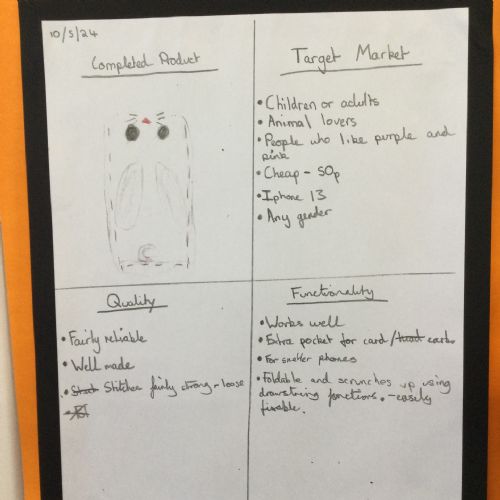 10/5/24
Completed Product
Target Market
• Children or adults
• Animal lovers
• People who like purple and
pink
• Cheap - 50p
• Iphone 13
• Any gender
Quality
• Fairly reliable
• Well made
• Stitches fairly strong - loose
Functionality
• Works well
• Extra pocket for card/ cards
• For smaller phones
• Foldable and scrunches up using
drawstring functions. - easily
fixable.